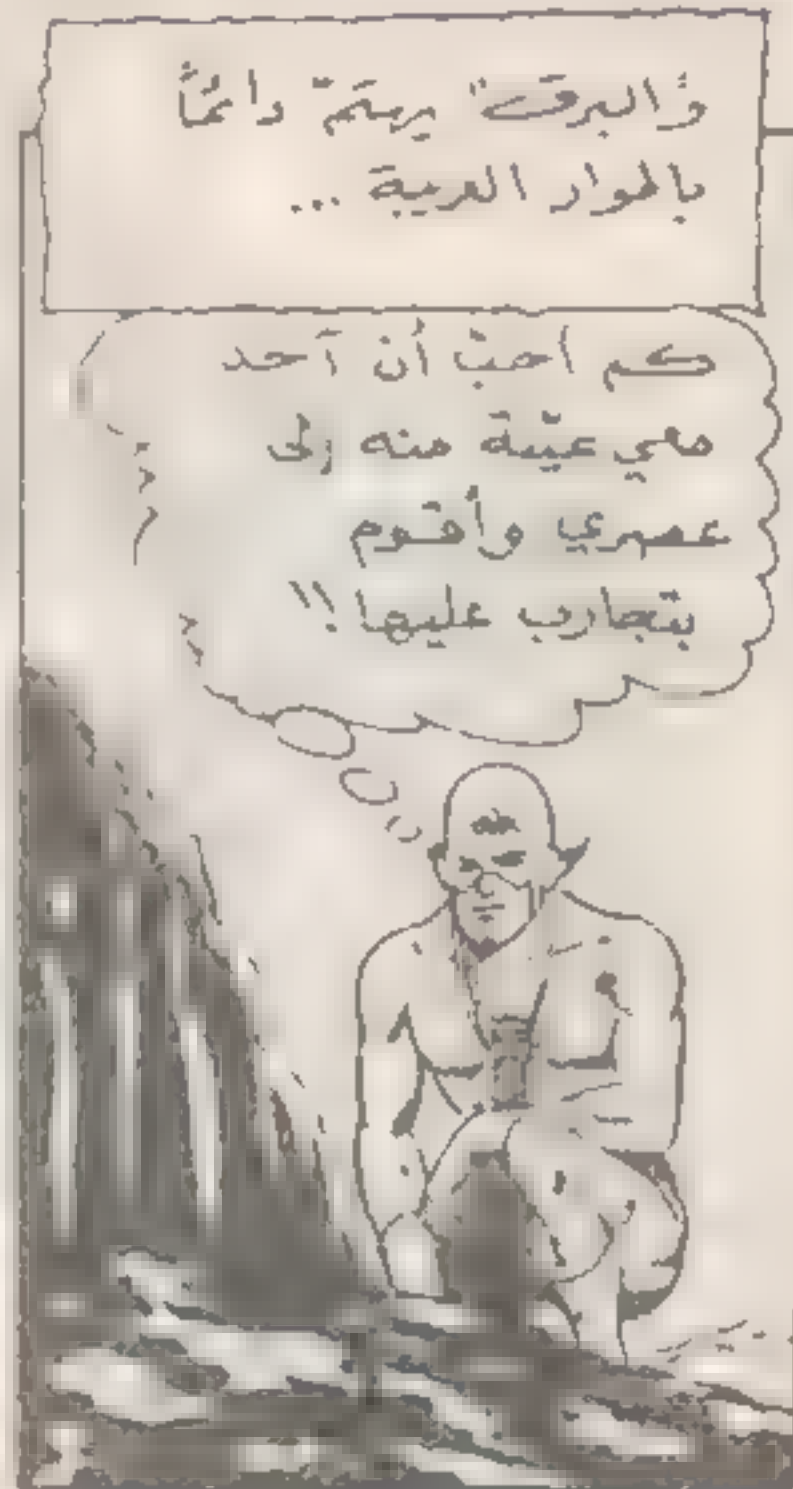 و"البرق" يهتمّ دائمًا
بالمواد الغريبة ...
كم أحبّ أن آخذ
معي عيّنة منه إلى
عصري وأقوم
بتجارب عليها !!